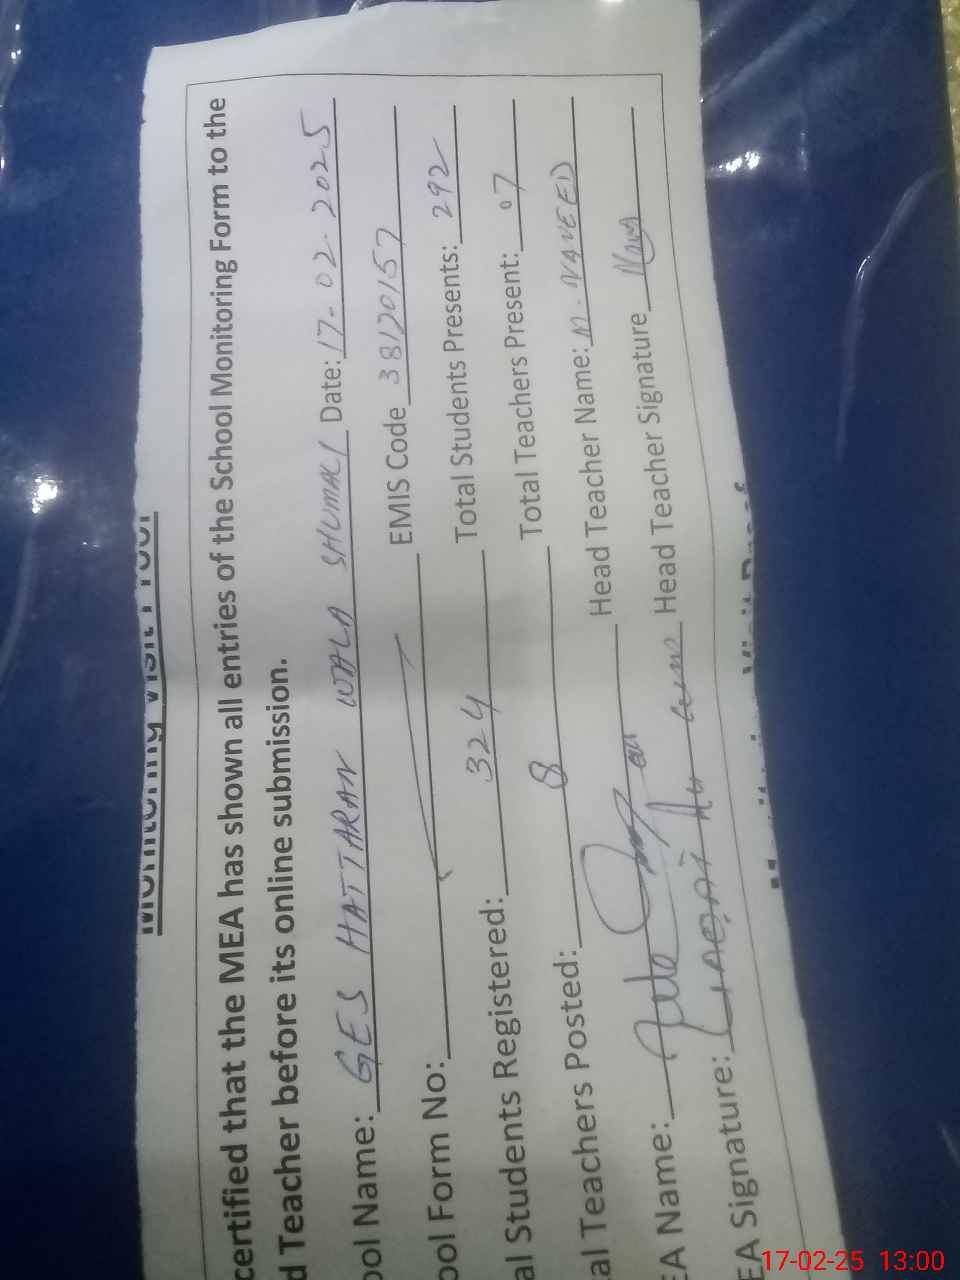 Monitoring Visit Proof
certified that the MEA has shown all entries of the School Monitoring Form to the
d Teacher before its online submission.
ool Name: GES HATTARAN WALA SHUMALI Date: 17-02-2025
ool Form No: EMIS Code 38120157
al Students Registered: 324 Total Students Presents: 292
al Teachers Posted: 8 Total Teachers Present: 07
EA Name: Head Teacher Name: M. NAVEED
EA Signature: Head Teacher Signature
17-02-25 13:00